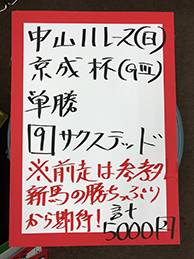 中山11レース(日)
京成杯(GⅢ)
単勝
9 サクステッド
※前走は参考外
新馬の勝ちっぷり
から期待!計
5000円